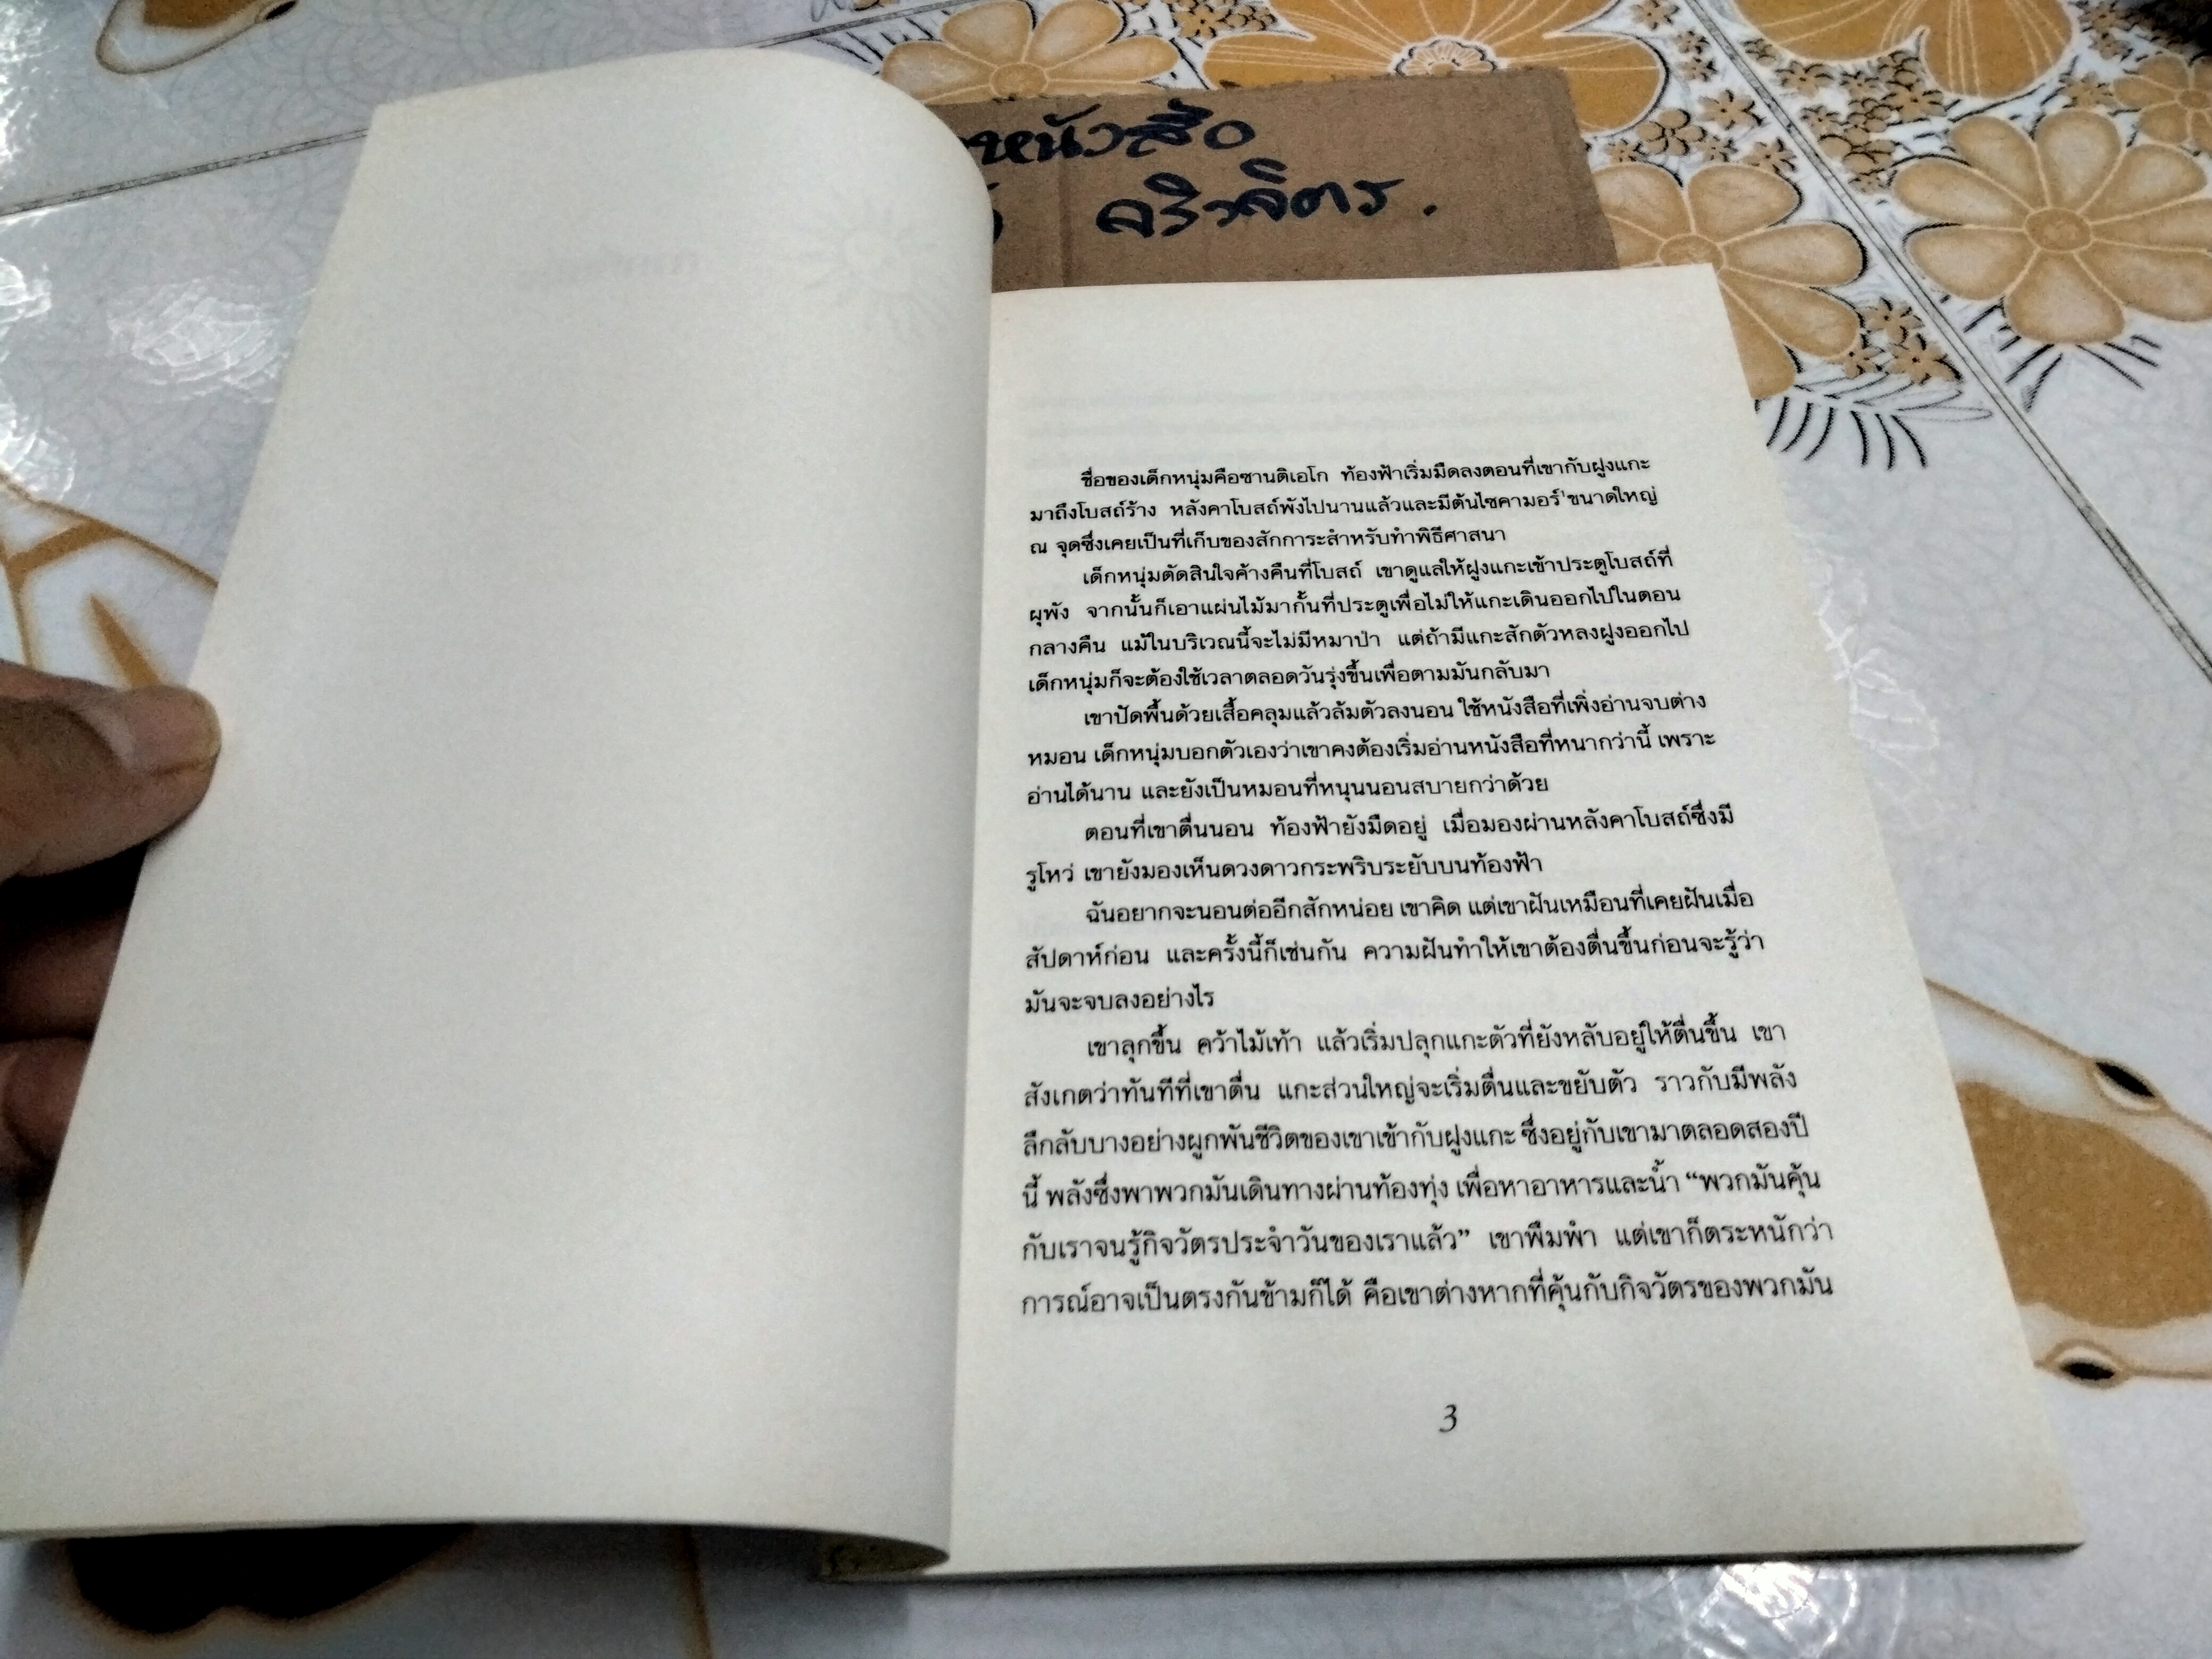 หนังสือ
ศรีวจิตร.
ชื่อของเด็กหนุ่มคือซานติเอโก ท้องฟ้าเริ่มมืดลงตอนที่เขากับฝูงแกะ
มาถึงโบสถ์ร้าง หลังคาโบสถ์พังไปนานแล้วและมีต้นไซคามอร์¹ขนาดใหญ่
ณ จุดซึ่งเคยเป็นที่เก็บของสักการะสำหรับทำพิธีศาสนา
เด็กหนุ่มตัดสินใจค้างคืนที่โบสถ์ เขาดูแลให้ฝูงแกะเข้าประตูโบสถ์ที่
ผุพัง จากนั้นก็เอาแผ่นไม้มากั้นที่ประตูเพื่อไม่ให้แกะเดินออกไปในตอน
กลางคืน แม้ในบริเวณนี้จะไม่มีหมาป่า แต่ถ้ามีแกะสักตัวหลงฝูงออกไป
เด็กหนุ่มก็จะต้องใช้เวลาตลอดวันรุ่งขึ้นเพื่อตามมันกลับมา
เขาปัดพื้นด้วยเสื้อคลุมแล้วล้มตัวลงนอน ใช้หนังสือที่เพิ่งอ่านจบต่าง
หมอน เด็กหนุ่มบอกตัวเองว่าเขาคงต้องเริ่มอ่านหนังสือที่หนากว่านี้ เพราะ
อ่านได้นาน และยังเป็นหมอนที่หนุนนอนสบายกว่าด้วย
ตอนที่เขาตื่นนอน ท้องฟ้ายังมืดอยู่ เมื่อมองผ่านหลังคาโบสถ์ซึ่งมี
รูโหว่ เขายังมองเห็นดวงดาวกระพริบระยับบนท้องฟ้า
ฉันอยากจะนอนต่ออีกสักหน่อย เขาคิด แต่เขาฝันเหมือนที่เคยฝันเมื่อ
สัปดาห์ก่อน และครั้งนี้ก็เช่นกัน ความฝันทำให้เขาต้องตื่นขึ้นก่อนจะรู้ว่า
มันจะจบลงอย่างไร
เขาลุกขึ้น คว้าไม้เท้า แล้วเริ่มปลุกแกะตัวที่ยังหลับอยู่ให้ตื่นขึ้น เขา
สังเกตว่าทันทีที่เขาตื่น แกะส่วนใหญ่จะเริ่มตื่นและขยับตัว ราวกับมีพลัง
ลึกลับบางอย่างผูกพันชีวิตของเขาเข้ากับฝูงแกะ ซึ่งอยู่กับเขามาตลอดสองปี
นี้ พลังซึ่งพาพวกมันเดินทางผ่านท้องทุ่ง เพื่อหาอาหารและน้ำ “พวกมันคุ้น
กับเราจนรู้กิจวัตรประจำวันของเราแล้ว” เขาพึมพำ แต่เขาก็ตระหนักว่า
การณ์อาจเป็นตรงกันข้ามก็ได้ คือเขาต่างหากที่คุ้นกับกิจวัตรของพวกมัน
3